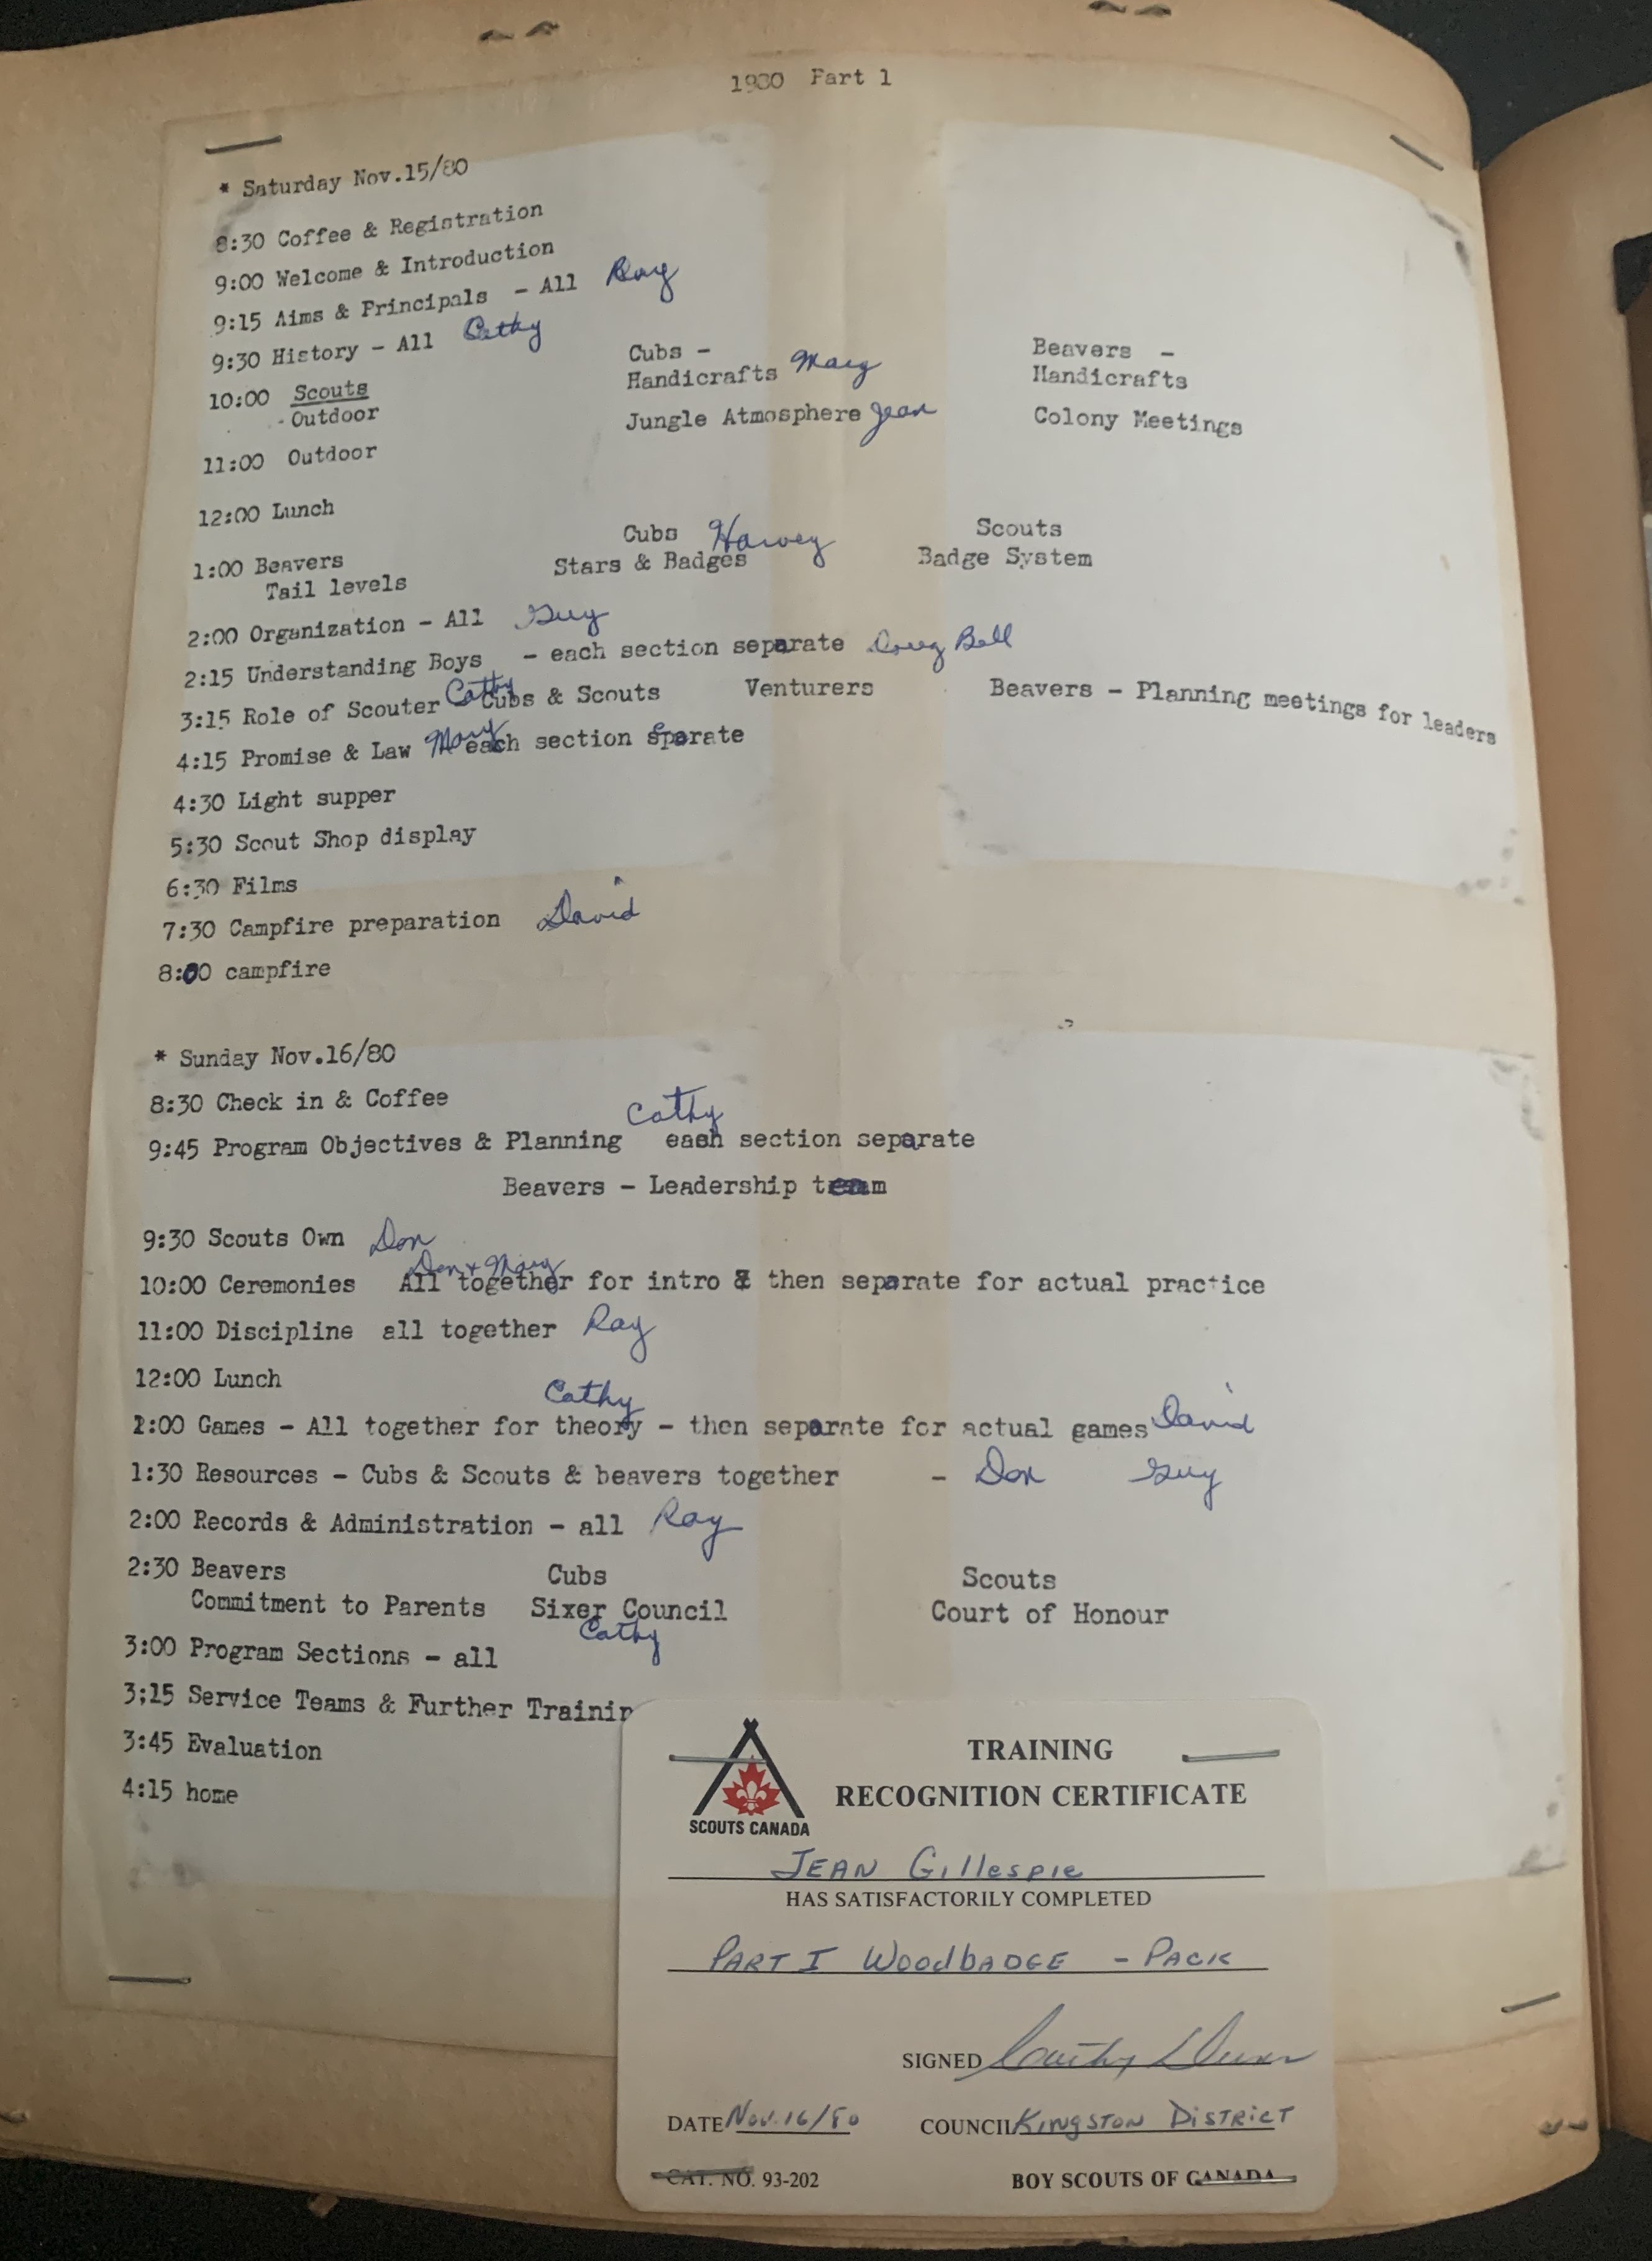 1980 Part 1
* Saturday Nov.15/80
8:30 Coffee & Registration
9:00 Welcome & Introduction
9:15 Aims & Principals - All Ray
9:30 History - All Cathy
10:00 Scouts Cubs - Beavers -
- Outdoor Handicrafts Marg Handicrafts
11:00 Outdoor Jungle Atmosphere Jean Colony Meetings
12:00 Lunch
1:00 Beavers Cubs Harvey Scouts
Tail levels Stars & Badges Badge System
2:00 Organization - All Guy
2:15 Understanding Boys - each section separate Doug Bell
3:15 Role of Scouter Cathy Cubs & Scouts Venturers Beavers - Planning meetings for leaders
4:15 Promise & Law Marg each section sparate
4:30 Light supper
5:30 Scout Shop display
6:30 Films
7:30 Campfire preparation David
8:00 campfire
* Sunday Nov.16/80
8:30 Check in & Coffee
Cathy
9:45 Program Objectives & Planning each section separate
Beavers - Leadership team
9:30 Scouts Own Don
Don + Marg
10:00 Ceremonies All together for intro & then separate for actual practice
11:00 Discipline all together Ray
12:00 Lunch
Cathy
1:00 Games - All together for theory - then separate for actual games David
1:30 Resources - Cubs & Scouts & beavers together - Don Guy
2:00 Records & Administration - all Ray
2:30 Beavers Cubs Scouts
Commitment to Parents Sixer Council Court of Honour
Cathy
3:00 Program Sections - all
3;15 Service Teams & Further Trainin
3:45 Evaluation
4:15 home
TRAINING
RECOGNITION CERTIFICATE
SCOUTS CANADA
JEAN Gillespie
HAS SATISFACTORILY COMPLETED
PART I WoodbADGE - PACK
SIGNED Cathy
DATE Nov.16/80 COUNCIL KINGSTON DISTRICT
CAT. NO. 93-202 BOY SCOUTS OF CANADA